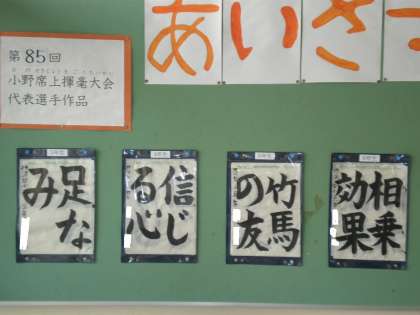 あいさつ
第85回
小野席上揮毫大会
代表選手作品
足な
み
信じ
る心
竹馬
の友
相乗
効果